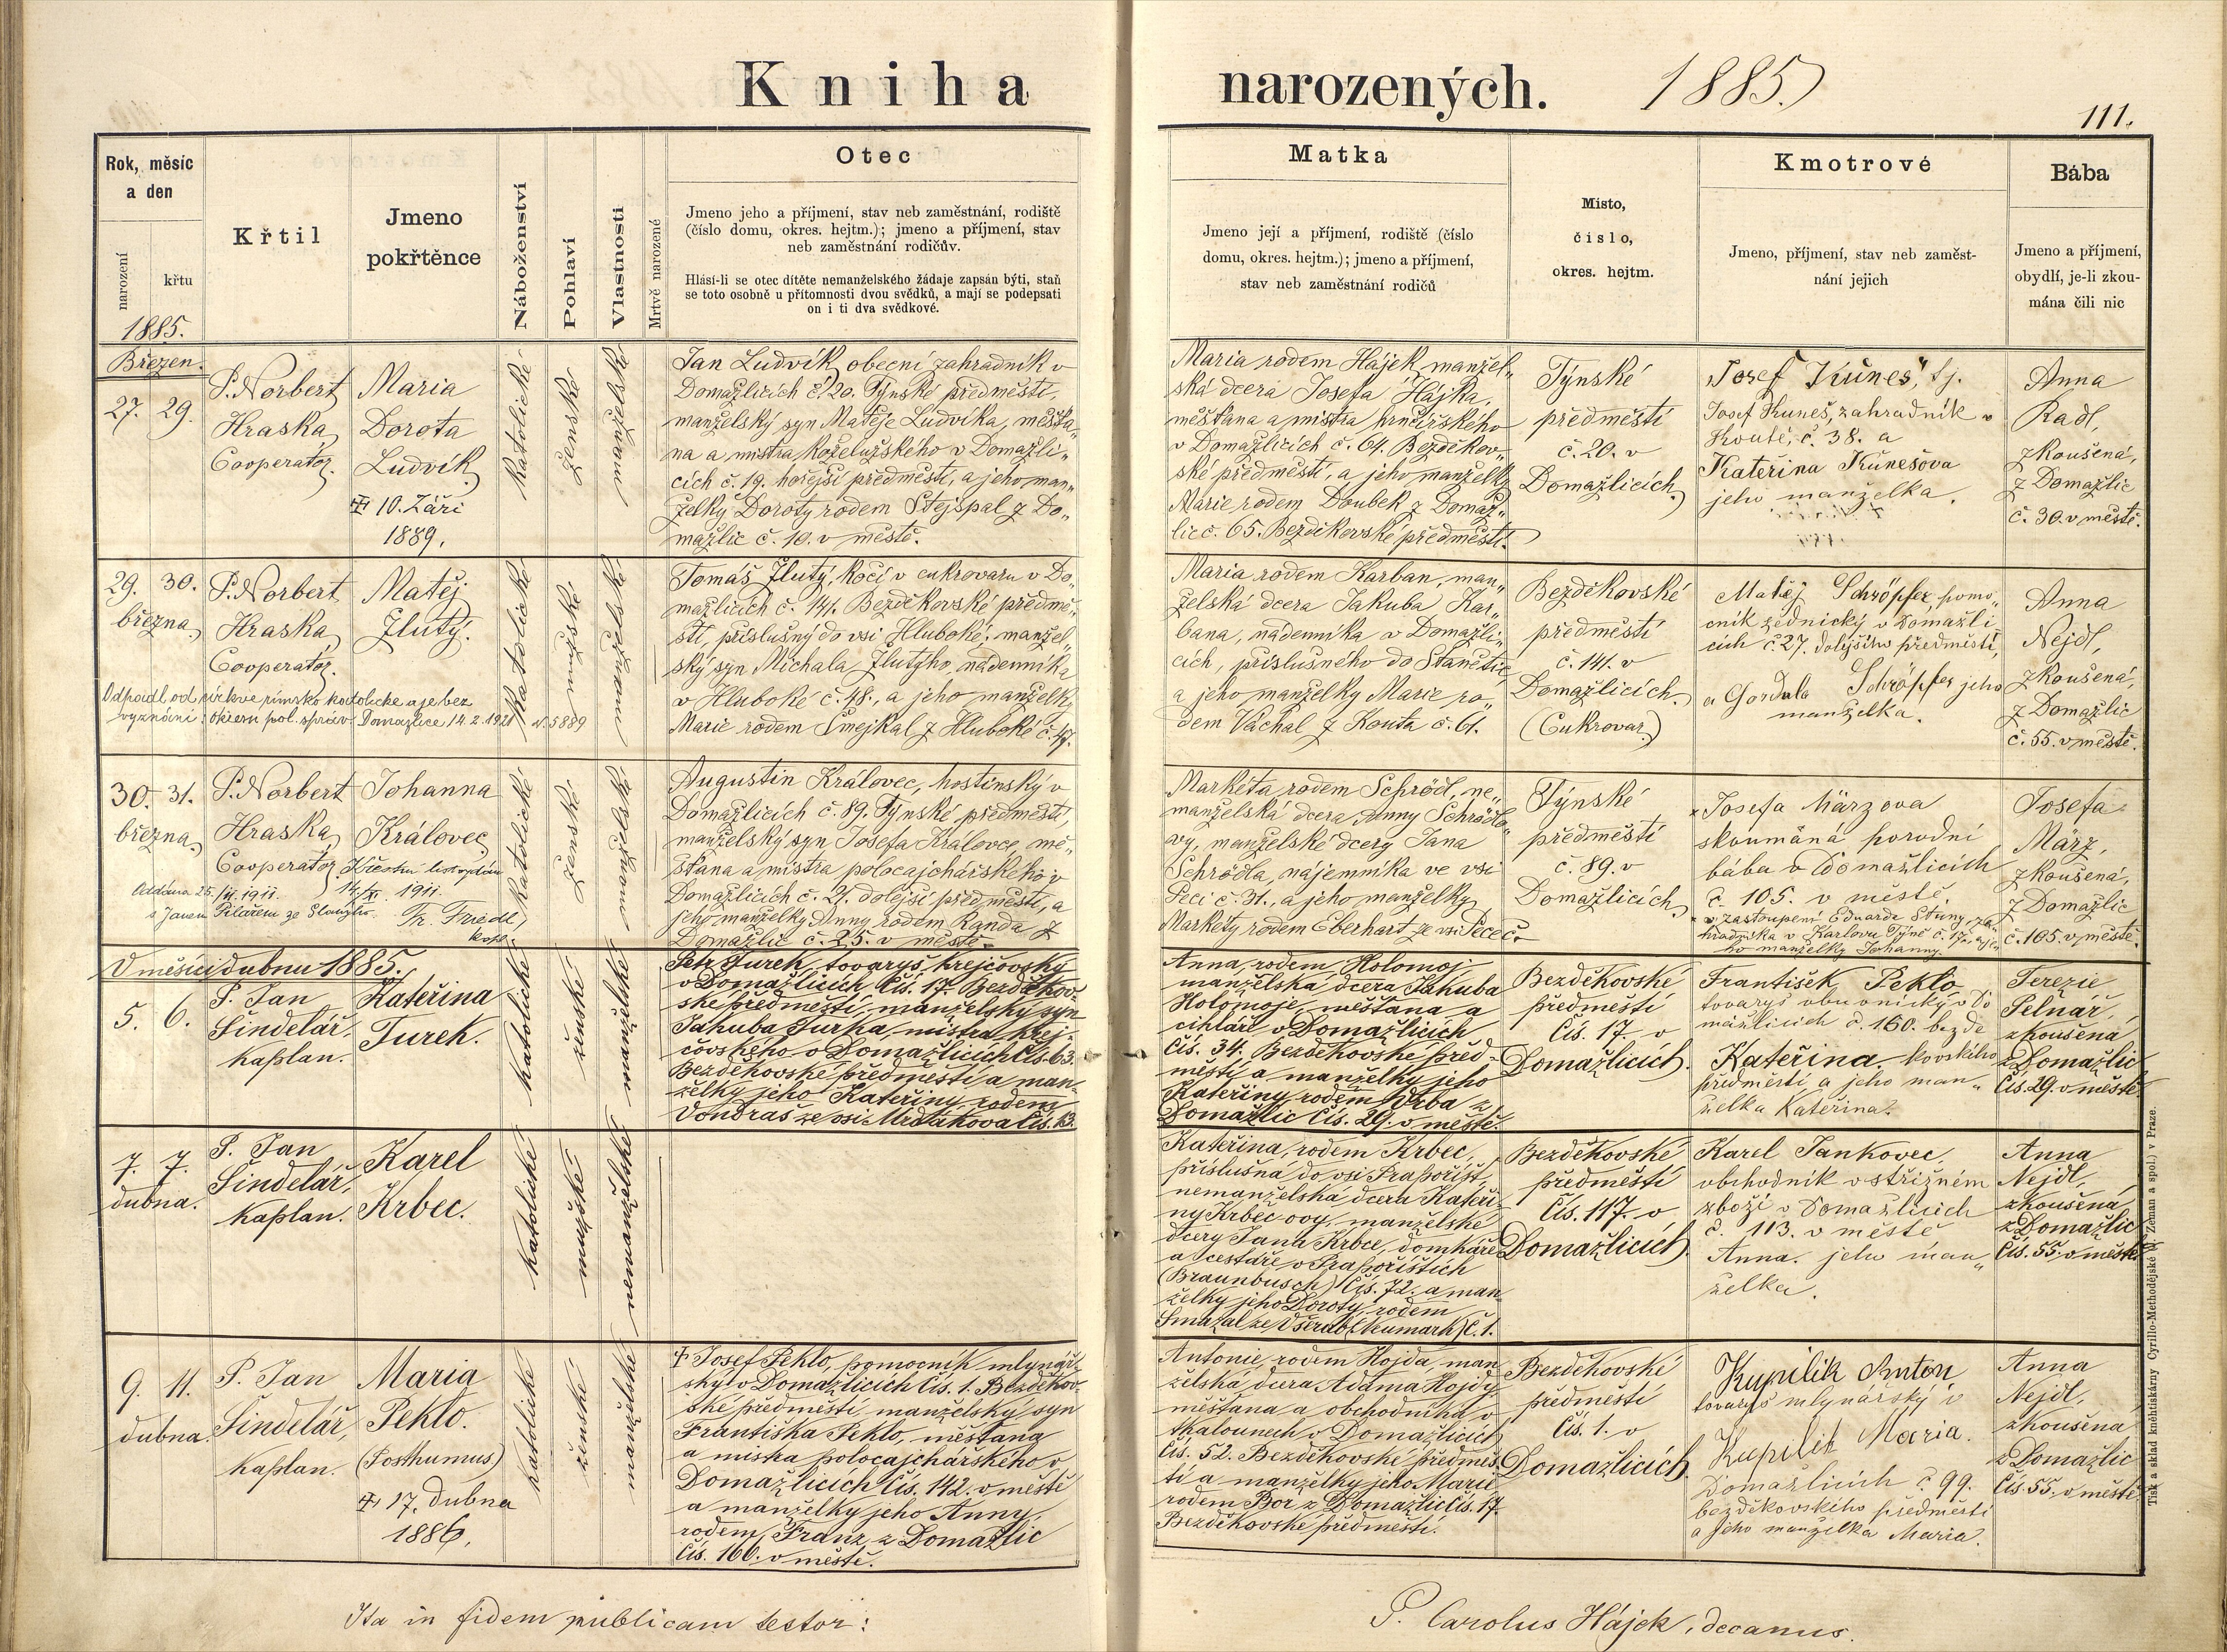 Kniha narozených. 1885.
111.
Rok, měsíc
a den
narození
křtu
1885.
Křtil
Jmeno
pokřtěnce
Náboženství
Pohlaví
Vlastnosti
Mrtvě narozené
Otec
Jmeno jeho a příjmení, stav neb zaměstnání, rodiště
(číslo domu, okres. hejtm.); jmeno a příjmení, stav
neb zaměstnání rodičův.
Hlásí-li se otec dítěte nemanželského žádaje zapsán býti, staň
se toto osobně u přítomnosti dvou svědků, a mají se podepsati
on i ti dva svědkové.
Matka
Jmeno její a příjmení, rodiště (číslo
domu, okres. hejtm.); jmeno a příjmení,
stav neb zaměstnání rodičů
Místo,
číslo,
okres. hejtm.
Kmotrové
Jmeno, příjmení, stav neb zaměst-
nání jejich
Bába
Jmeno a příjmení,
obydlí, je-li zkou-
mána čili nic
Březen.
27. 29.
P. Norbert
Hraska,
Cooperator.
Maria
Dorota
Ludvík
10. Září
1889.
katolické
ženské
manželské
Jan Ludvík, obecní zahradník v
Domažlicích č. 20. Týnské předměstí,
manželský syn Matěje Ludvíka, měšťa„
na a mistra koželužského v Domažli„
cích č. 19. hořejší předměstí, a jeho man„
želky Doroty rodem Stejspal z Do„
mažlic č. 10. v městě.
Maria rodem Hájek manžel„
ská dcera Josefa Hájka,
měšťana a mistra hrnčířského
v Domažlicích č. 64. Bezděkov„
ské předměstí, a jeho manželky
Marie rodem Doubek z Domaž„
lic č. 65. Bezděkovské předměstí.
Týnské
předměstí
č. 20. v
Domažlicích
Josef Kuneš, tj.
Josef Kuneš, zahradník v
Koutě, č. 38. a
Kateřina Kunešova
jeho manželka.
Anna
Radl,
zkoušená,
z Domažlic
č. 30. v městě.
29. 30.
března
P. Norbert
Hraska,
Cooperator.
Matěj
Žlutý.
Odpadl od církve římsko katolické a je bez
vyznání: okresní pol. správ. Domažlice 14. 2. 1921 č. 5889
katolické
mužské
manželské
Tomáš Žlutý, kočí v cukrovaru v Do„
mažlicích č. 141. Bezděkovské předmě„
stí, příslušný do vsi Hluboké, manžel„
ský syn Michala Žlutýho, nádenníka
v Hluboké č. 48., a jeho manželky
Marie rodem Smejkal z Hluboké č. 47.
Maria rodem Karban, man„
želská dcera Jakuba Kar„
bana, nádenníka v Domažli„
cích, příslušného do Stanětic
a jeho manželky Marie ro„
dem Váchal z Kouta č. 61.
Bezděkovské
předměstí
č. 141. v
Domažlicích
(Cukrovar)
Matěj Schröpfer, pomo„
cník zednický v Domažli
cích č. 27. dolejšího předměstí,
a Gordula Schröpfer jeho
manželka.
Anna
Nejdl,
zkoušená,
z Domažlic
č. 55. v městě.
30. 31.
března
P. Norbert
Hraska,
Cooperator
Johanna
Královec
14/XI. 1911.
Oddána 25./XI. 1911.
s Janem Pilařem ze
Fr. Friedl,
kapl.
katolické
ženské
manželské
Augustin Královec, hostinský v
Domažlicích č. 89. Týnské předměstí,
manželský syn Josefa Královce, mě„
šťana a mistra polocajchářského v
Domažlicích č. 21. dolejší předměstí, a
jeho manželky Anny rodem Randa z
Domažlic č. 25. v městě.
Markéta rodem Schrödl, ne„
manželská dcera Anny Schrödlo„
vy, manželské dcery Jana
Schrödla, nájemníka ve vsi
Peci č. 31., a jeho manželky
Markéty rodem Eberhart ze vsi Pece č.
Týnské
předměstí
č. 89. v
Domažlicích
Josefa Märzova
skoumaná porodní
bába v Domažlicích
č. 105. v městě.
v zastoupení Eduarda Stuny, za„
hradníka v Karlovu Týně č. 17. a je„
ho manželky Johanny.
Josefa
März,
zkoušená,
z Domažlic
č. 105. v městě.
V měsíci dubnu 1885.
5. 6.
P. Jan
Šindelář,
kaplan.
Kateřina
Turek.
katolické
ženské
manželské
Petr Turek, tovaryš krejčovský
v Domažlicích Čís. 17. Bezděkov-
ské předměstí, manželský syn
Jakuba Turka, mistra krej-
čovského v Domažlicích Čís. 63.
Bezděkovské předměstí a man-
želky jeho Kateřiny, rodem
Vondraš ze vsi Mrdákova Čís. 13.
Anna, rodem Holomoj
manželská dcera Jakuba
Holomoje, měšťana a
cihláře v Domažlicích
Čís. 34. Bezděkovské před-
městí a manželky jeho
Kateřiny rodem Vrba z
Domažlic Čís. 29. v městě.
Bezděkovské
předměstí
Čís. 17. v
Domažlicích.
František Peklo
tovaryš obuvnický v Do
mažlicích č. 160. bezdě
Kateřina. kovského
předměstí, a jeho man„
želka Kateřina.
Terezie
Pelnář,
zkoušená
z Domažlic
Čís. 29. v městě.
7. 7.
dubna.
P. Jan
Šindelář,
kaplan.
Karel
Krbec.
katolické
mužské
nemanželské
Kateřina, rodem Krbec,
příslušná do vsi Prapořišť,
nemanželská dcera Kateři-
ny Krbec ovy, manželské
dcery Jana Krbce, domkáře
a cestáře v Prapořištích
(Braunbusch) Čís. 72. a man-
želky jeho Doroty, rodem
Smazal ze Všerub (Neumark) Č. 1.
Bezděkovské
předměstí
Čís. 117. v
Domažlicích.
Karel Jankovec,
obchodník v střižném
zboží v Domažlicích
č. 113. v městě
Anna. jeho man„
želka.
Anna
Nejdl,
zkoušená
z Domažlic
Čís. 55. v městě.
9. 11.
dubna.
P. Jan
Šindelář,
kaplan.
Maria
Peklo.
(Posthumus)
17. Dubna
1886.
katolické
ženské
manželské
† Josef Peklo, pomocník mlynář-
ský v Domažlicích Čís. 1. Bezděkov-
ské předměstí manželský syn
Františka Peklo, měšťana
a mistra polocajchářského v
Domažlicích Čís. 142. v městě
a manželky jeho Anny,
rodem Franz z Domažlic
Čís. 160. v městě.
Antonie, rodem Hojda, man
želská dcera Adama Hojdy,
měšťana a obchodníka v
tkalounech v Domažlicích
Čís. 52. Bezděkovské předměs-
tí a manželky jeho Marie
rodem Bor z Domažlic Čís. 17.
Bezděkovské předměstí.
Bezděkovské
předměstí
Čís. 1. v
Domažlicích.
Kupilik Anton
tovaryš mlynářský v
Kupilik Maria.
Domažlicích č. 99.
bezděkovského předměstí
a jeho manželka Maria.
Anna
Nejdl,
zkoušena
z Domažlic
Čís. 55. v městě.
Ita in fidem publicam testor:
P. Carolus Hájek, decanus.
Tisk a sklad knihtiskárny Cyrillo-Methodějské (J. Zeman a spol.) v Praze.